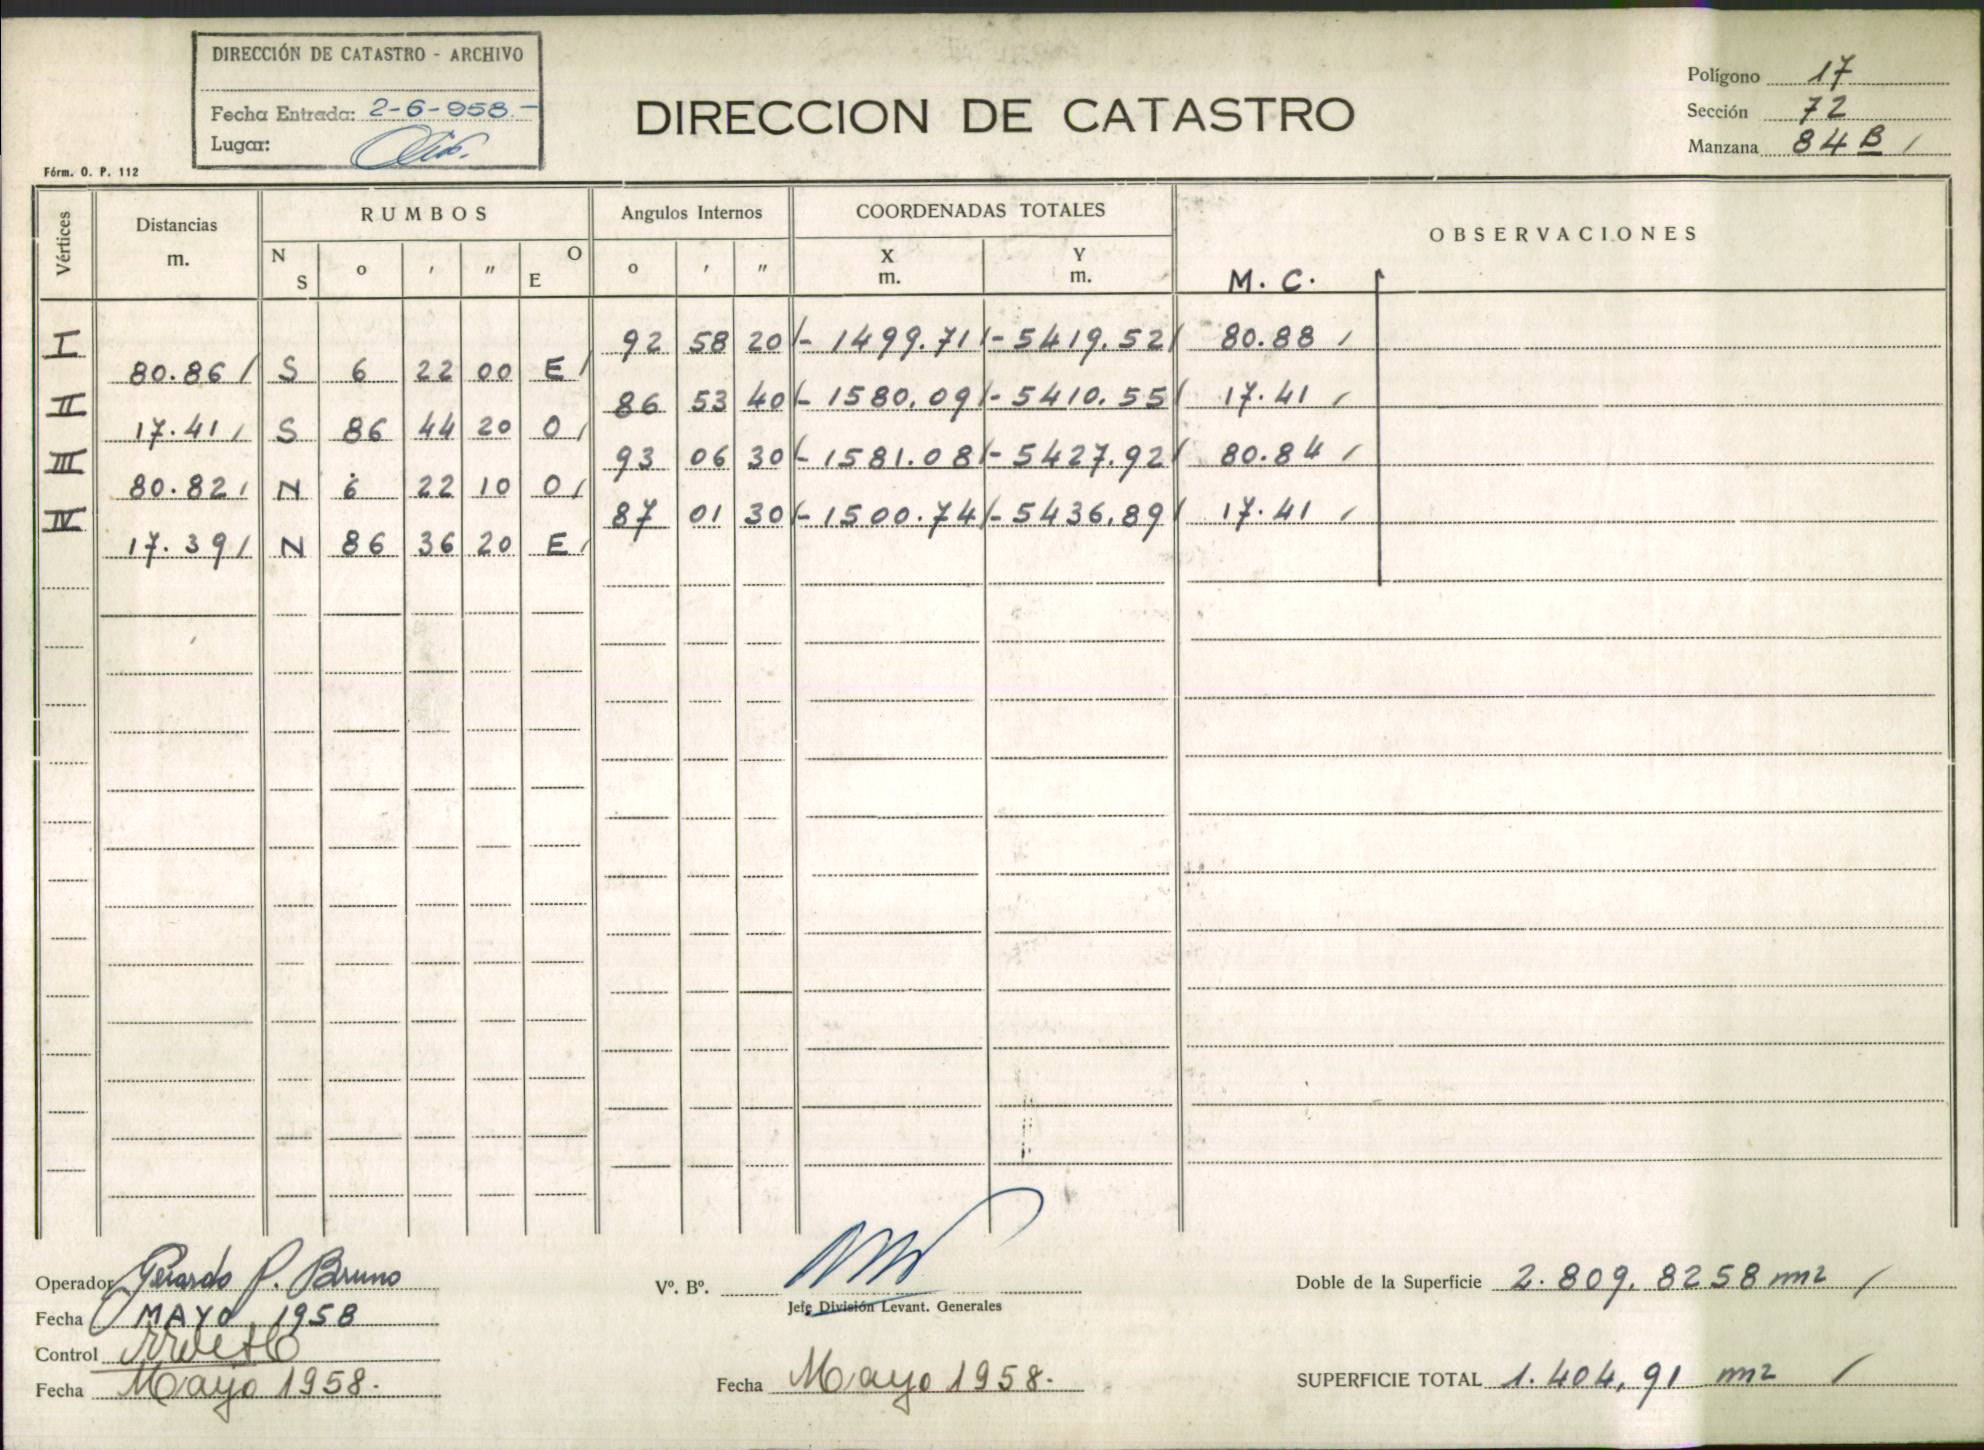 DIRECCIÓN DE CATASTRO - ARCHIVO
Fecha Entrada: 2-6-958.-
Lugar:
DIRECCION DE CATASTRO
Polígono 17
Sección 72
Manzana 84 B /
Fórm. O. P. 112
Vértices Distancias m. RUMBOS Angulos Internos COORDENADAS TOTALES OBSERVACIONES
N S o ' " O E o ' " X m. Y m. M. C.
I 92 58 20 /- 1499.71 /- 5419.52 / 80.88 /
80.86 / S 6 22 00 E /
II 86 53 40 /- 1580.09 /- 5410.55 / 17.41 /
17.41 / S 86 44 20 O /
III 93 06 30 /- 1581.08 /- 5427.92 / 80.84 /
80.82 / N 6 22 10 O /
IV 87 01 30 /- 1500.74 /- 5436.89 / 17.41 /
17.39 / N 86 36 20 E /
Operador Gerardo P. Bruno
Fecha MAYO 1958
Control
Fecha Mayo 1958.
Vº. Bº.
Jefe División Levant. Generales
Fecha Mayo 1958.
Doble de la Superficie 2.809.8258 m2 /
SUPERFICIE TOTAL 1.404,91 m2 /